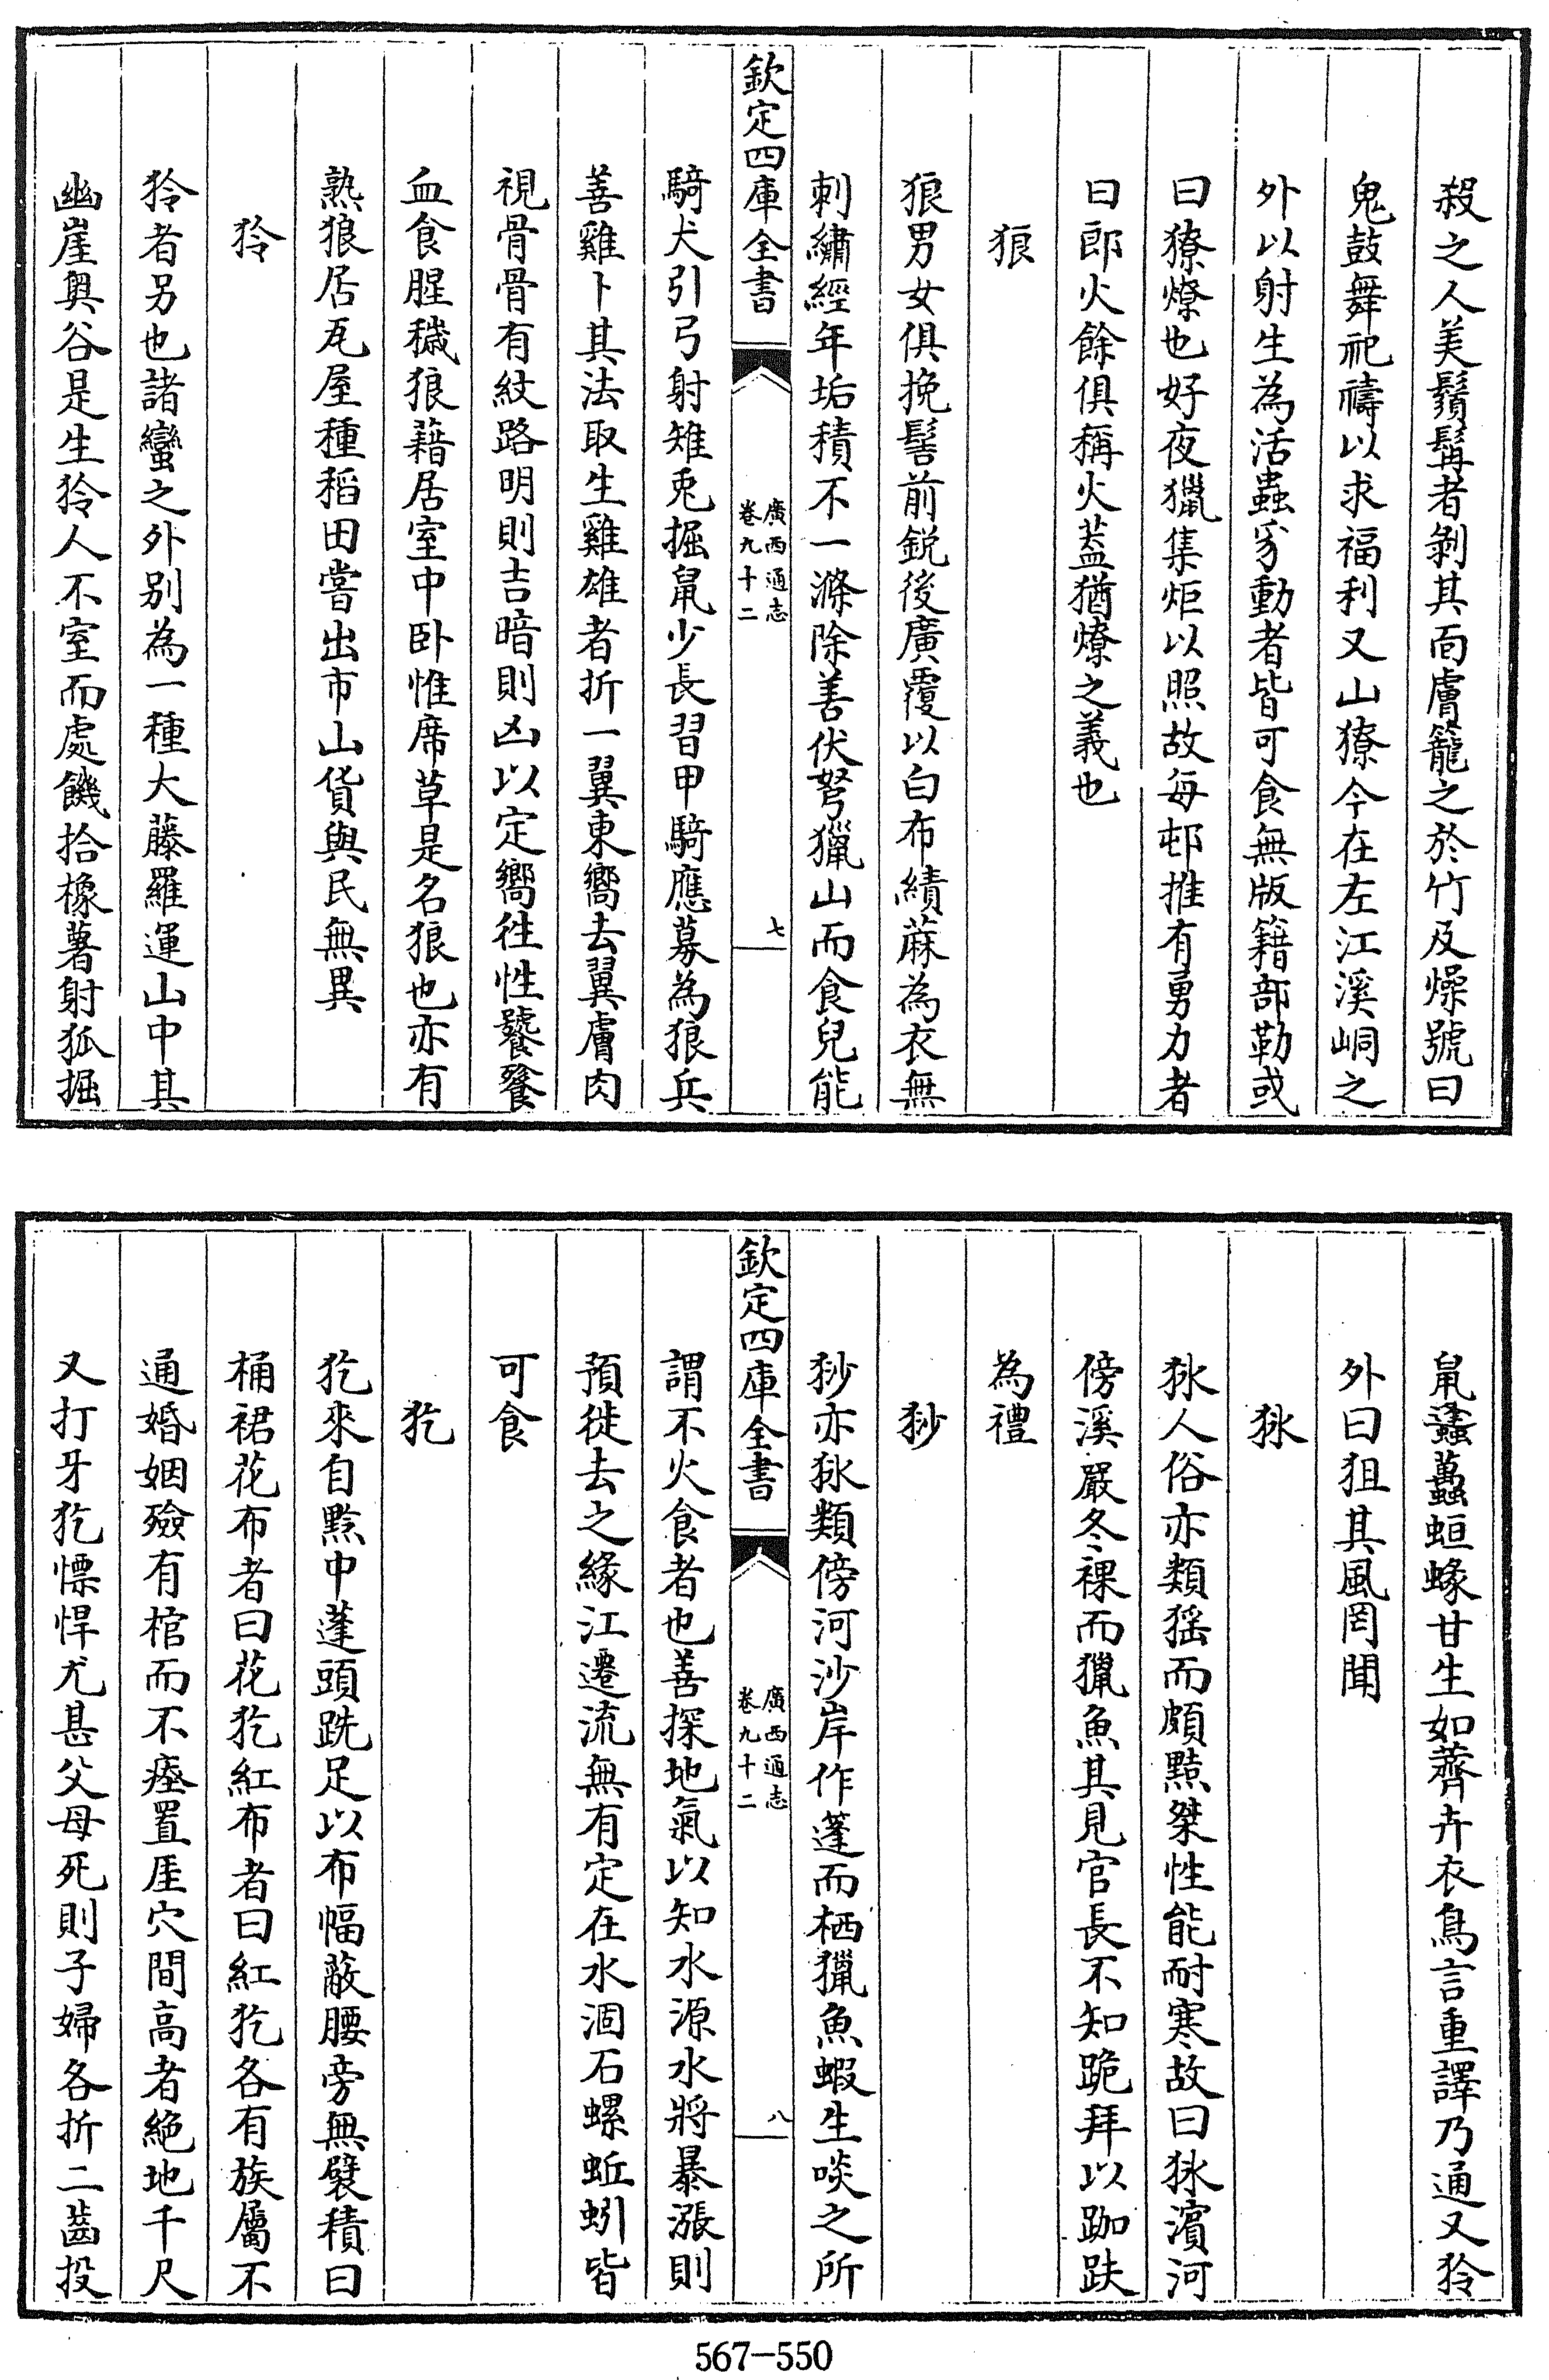 殺之人美鬚髯者剝其面膚籠之於竹及燥號曰
鬼鼓舞祀禱以求福利又山獠今在左江溪峒之
外以射生為活蟲豸動者皆可食無版籍部勒或
曰獠燎也好夜獵集炬以照故每邨推有勇力者
曰郎火餘俱稱火葢猶燎之義也
狼
狼男女俱挽髻前鋭後廣覆以白布績蔴為衣無
刺繡經年垢積不一滌除善伏弩獵山而食兒能
欽定四庫全書
廣西通志
卷九十二
七
騎犬引弓射雉兎掘鼠少長習甲騎應募為狼兵
善雞卜其法取生雞雄者折一翼東嚮去翼膚肉
視骨骨有紋路明則吉暗則凶以定嚮徃性饕餮
血食腥穢狼藉居室中卧惟席草是名狼也亦有
熟狼居瓦屋種稻田嘗出市山貨與民無異
狑
狑者另也諸蠻之外别為一種大藤羅運山中其
幽崖奥谷是生狑人不室而處饑拾橡薯射狐掘
鼠蠭蠆蚳蝝甘生如薺卉衣鳥言重譯乃通又狑
外曰狙其風罔聞
㺱
㺱人俗亦類猺而頗黠桀性能耐寒故曰㺱濱河
傍溪嚴冬裸而獵魚其見官長不知跪拜以跏趺
為禮
㺒
㺒亦㺱類傍河沙岸作蓬而栖獵魚蝦生啖之所
欽定四庫全書
廣西通志
卷九十二
八
謂不火食者也善探地氣以知水源水將暴漲則
預徙去之緣江遷流無有定在水涸石螺蚯蚓皆
可食
犵
犵來自黔中蓬頭跣足以布幅蔽腰旁無襞積曰
桶裙花布者曰花犵紅布者曰紅犵各有族屬不
通婚姻殮有棺而不瘞置厓穴間高者絶地千尺
又打牙犵慓悍尤甚父母死則子婦各折二齒投
567-550